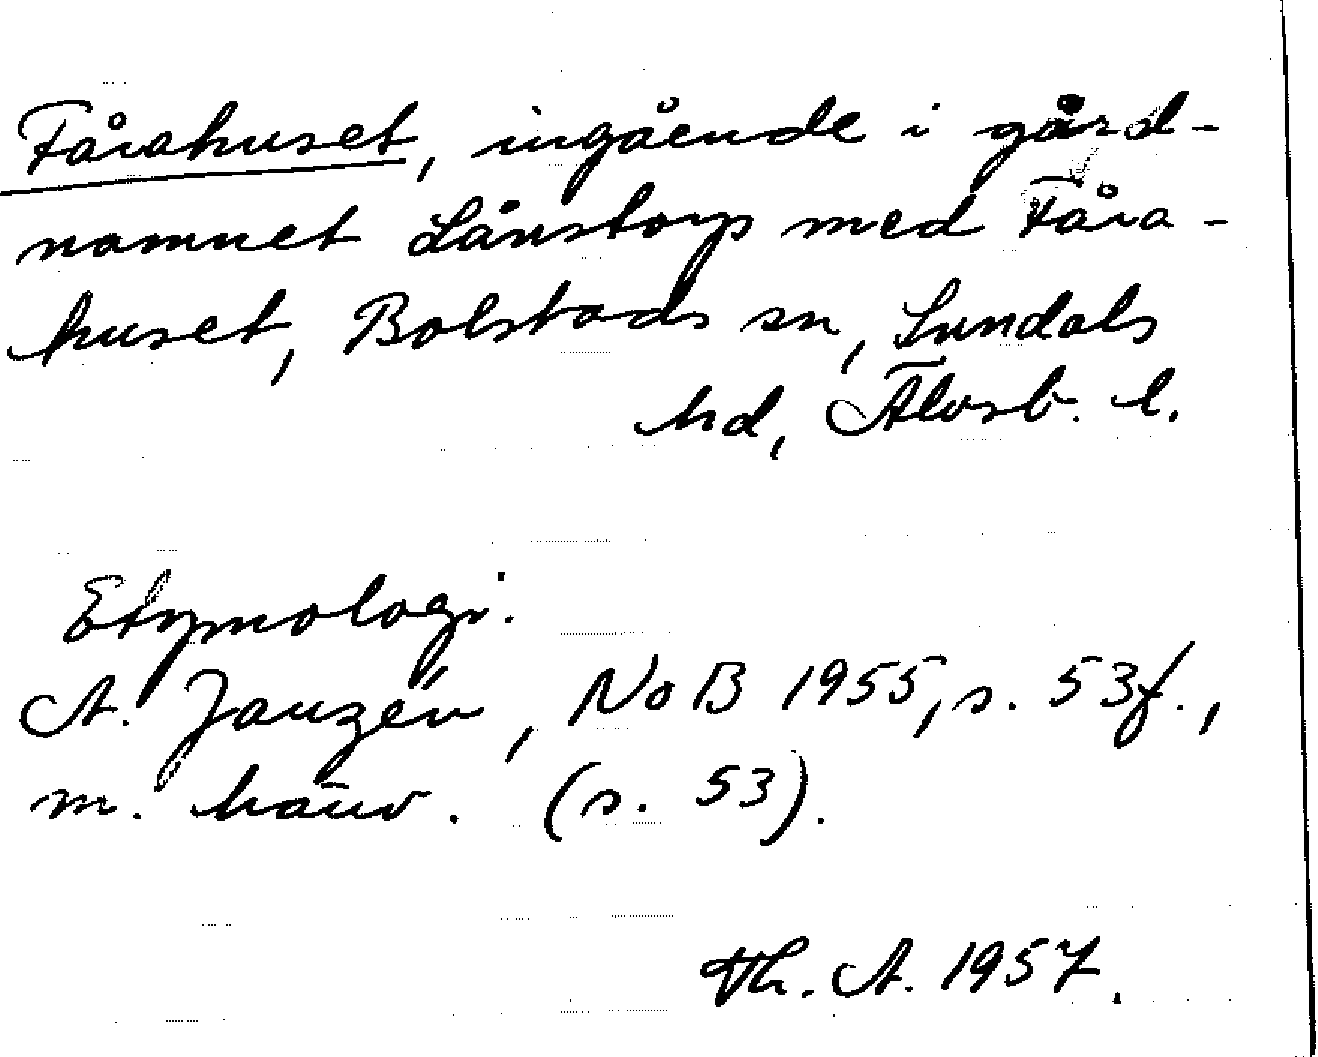 Fårahuset, ingående i gård-
namnet Lånstorp med Fåra-
huset, Bolstads sn, Sundals
hd, Älvsb. l.
Etymologi.
A. Janzén, NoB 1955, s. 53f.,
m. hänv. (s. 53).
Th. A. 1957.